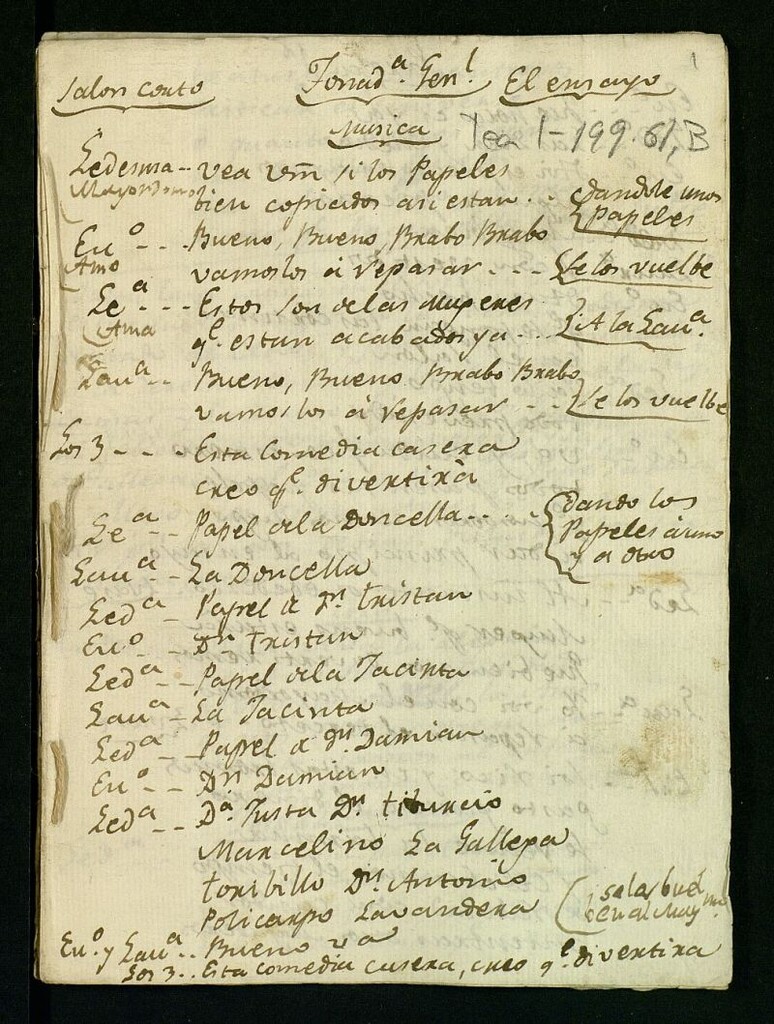 1
Salon corto Tonad.ª Gen.l El ensayo
Musica Tea 1-199.61, B
Ledesma - vea Vm si los Papeles
Mayordomo bien copiados asi estan . . dandole unos Papeles
Eu.º - - Bueno, Bueno, Brabo Brabo
Amo vamoslos à repasar - - - Se los vuelbe
Le.ª - - - Estos son de las Mugeres
Ama q.e estan acabados ya - - A la Lau.ª
Lau.ª - - Bueno, Bueno Brabo Brabo
vamoslos à repasar - - Se los vuelbe
Los 3 - - - Esta Comedia casera
creo q.e divertirà
Le.ª - - Papel dela Doncella - - dando los Papeles à uno y a otro
Lau.ª - La Doncella
Led.ª - Papel de Dn tristan
Eu.º - Dn Tristan
Led.ª - - Papel dela Jacinta
Lau.ª - La Jacinta
Led.ª - Papel de Dn Damian
Eu.º - - Dn Damian
Led.ª - - D.ª Justa Dn tiburcio
Marcelino La Gallega
toribillo Dn Antonio
Policarpo Lavandera
Eu.º y Lau.ª - - Bueno va
Los 3 - - Esta comedia casera, creo q.e divertira